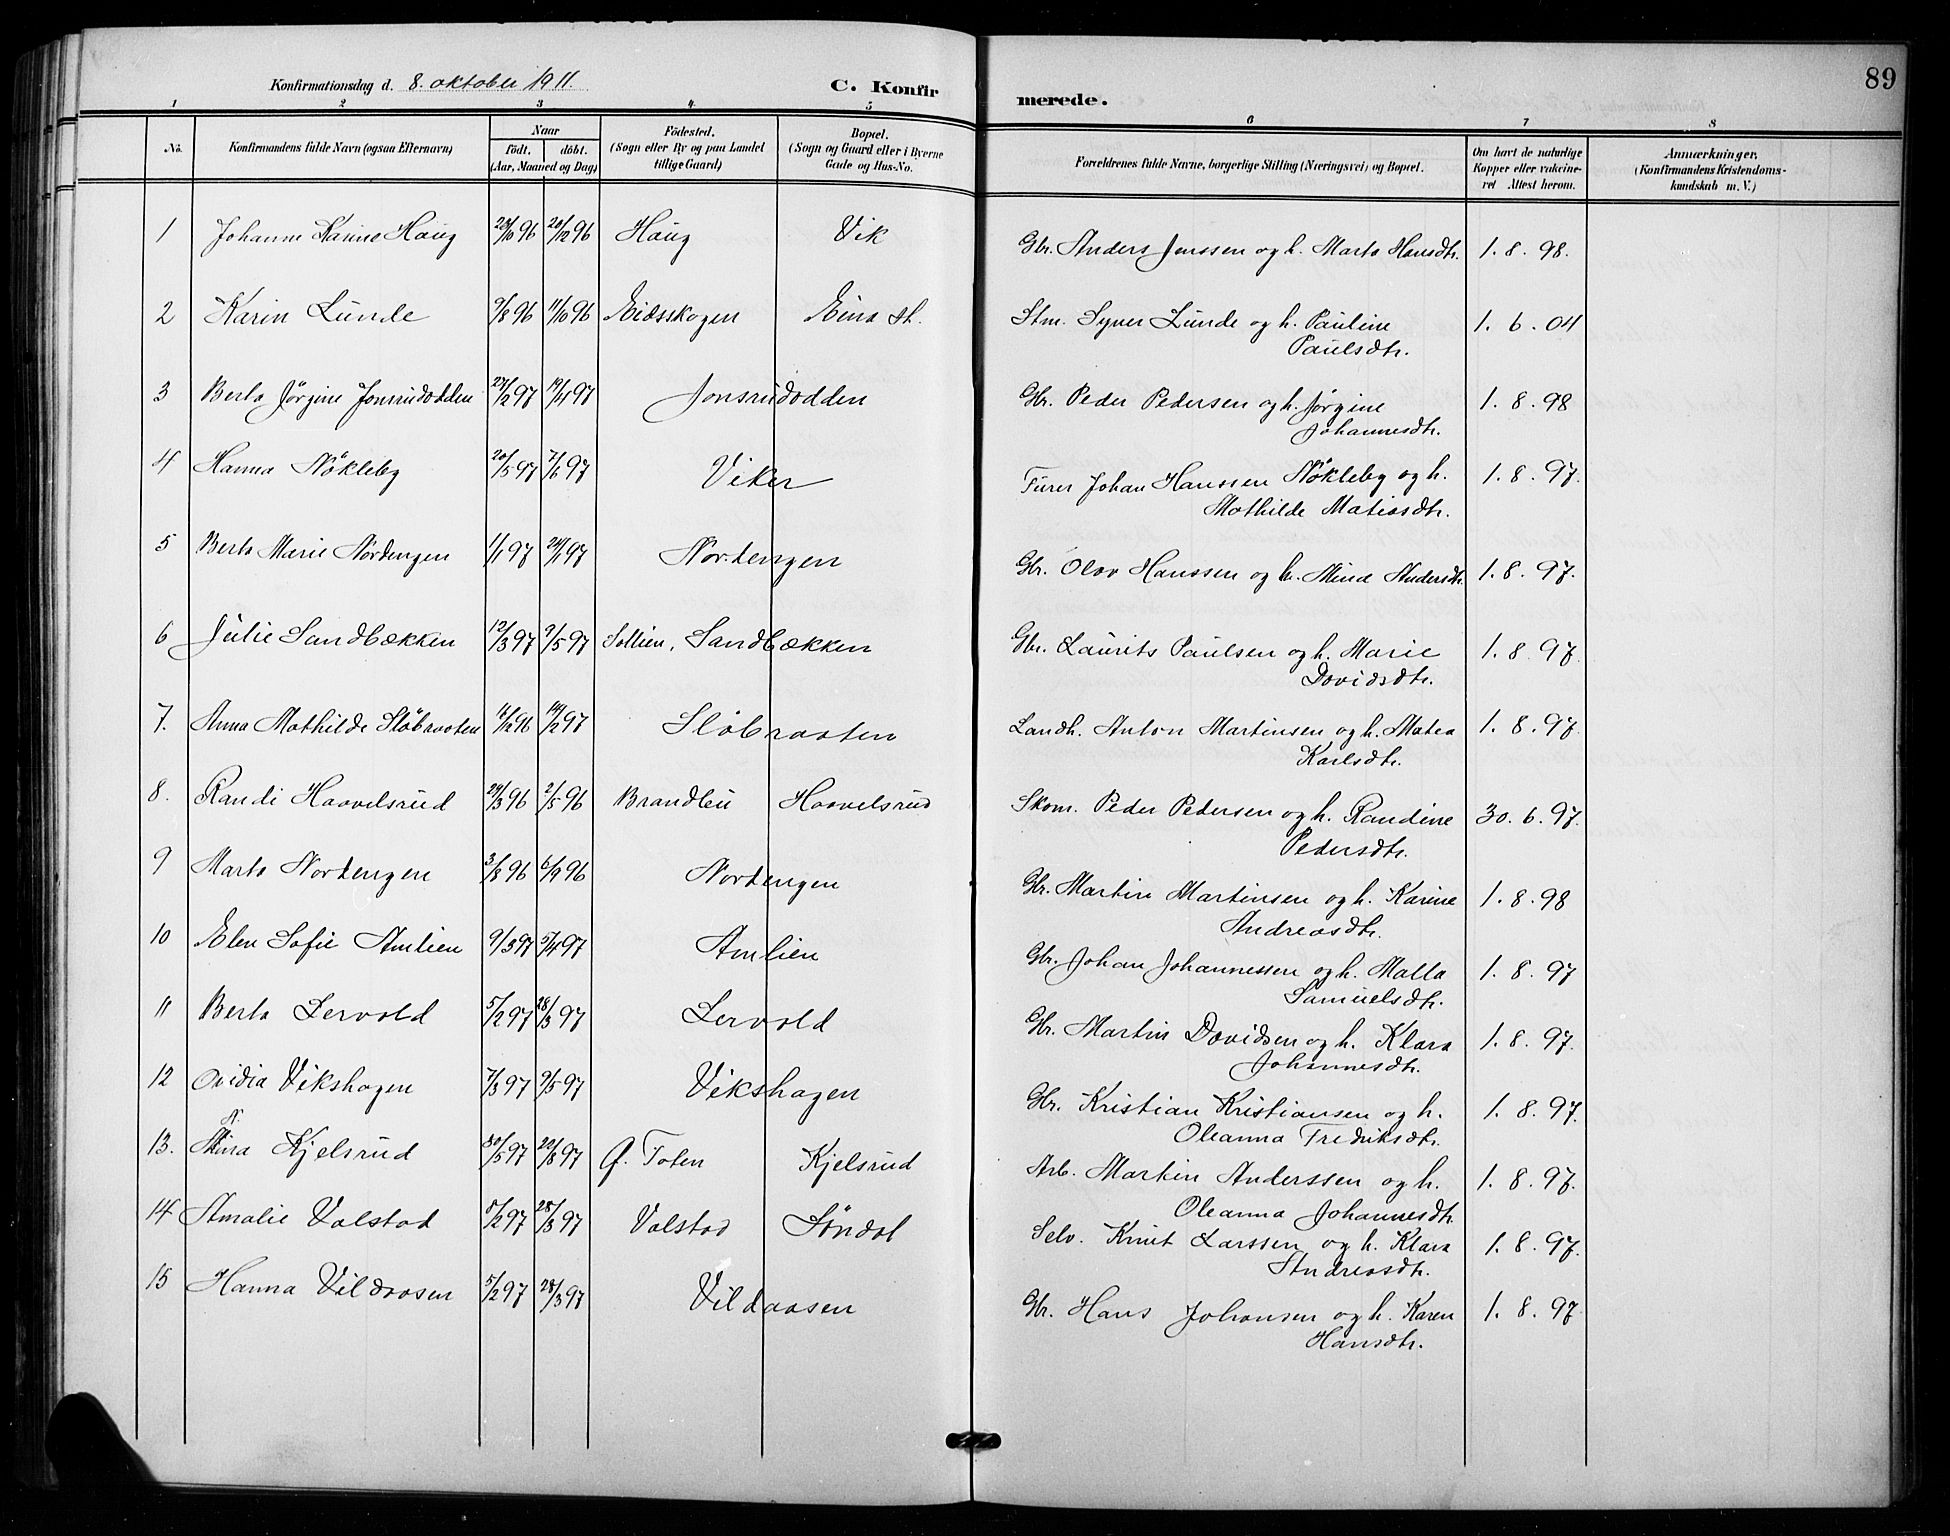 89
Konfirmationsdag d. 8. oktober 1911. C. Konfirmerede.
1 2 3 4 5 6 7 8
No. Konfirmandens fulde Navn (ogsaa Efternavn) Naar født. døbt. (Aar, Maaned og Dag) Fødested. (Sogn eller By og paa Landet tillige Gaard) Bopæl. (Sogn og Gaard eller i Byerne Gade og Hus-No. Forældrenes fulde Navne, borgerlige Stilling (Næringsvei) og Bopæl. Om havt de naturlige Kopper eller vakcineret Attest herom. Anmærkninger. (Konfirmandens Kristendomskundskab m. V.)
1 Johanne Karine Haug 23/10 96 20/12 96 Haug Vik Gbr. Anders Jenssen og h. Marta Hansdtr. 1. 8. 98.
2 Karin Lunde 9/8 96 11/10 96 Eidsskogen Eina st. Stm. Syver Lunde og h. Pauline
Paulsdtr. 1. 6. 04
3 Berta Jørgine Jonsrudodden 27/2 97 19/4 97 Jonsrudodden Gbr. Peder Pedersen og h. Jørgine
Johannesdtr. 1. 8. 98
4 Hanna Nøkleby 20/5 97 7/6 97 Viker Furer Johan Hanssen Nøkleby og h.
Mathilde Matiasdtr. 1. 8. 97.
5 Berta Marie Nordengen 1/1 97 24/1 97 Nordengen Gbr. Olav Hanssen og h. Mina Andersdtr. 1. 8. 97.
6 Julie Sandbækken 12/3 97 9/5 97 Sollien, Sandbækken Gbr. Laurits Paulsen og h. Marie
Davidsdtr. 1. 8. 97.
7. Anna Mathilde Slåbraaten 16/12 96 14/2 97 Slåbraaten Landh. Anton Martinsen og h. Matea
Karlsdtr. 1. 8. 97.
8. Randi Haavelsrud 24/3 96 2/5 96 Brandbu Haavelsrud Skom. Peder Pedersen og h. Randine
Pedersdtr. 30. 6. 97.
9 Marta Nordengen 3/8 96 6/9 96 Nordengen Gbr. Martin Martinsen og h. Karine
Andreasdtr. 1. 8. 98
10 Elen Sofie Amlien 9/3 97 5/4 97 Amlien Gbr. Johan Johannessen og h. Malla
Samuelsdtr. 1. 8. 97
11 Berta Lervold 5/2 97 28/3 97 Lervold Gbr. Martin Davidsen og h. Klara
Johannesdtr. 1. 8. 97.
12 Ovidia Vikshagen 7/3 97 9/5 97 Vikshagen Gbr. Kristian Kristiansen og h.
Oleanna Fredriksdtr. 1. 8. 97.
13. Kjelsrud 30/5 97 22/8 97 Ø. Toten Kjelsrud Arb. Martin Anderssen og h.
Oleanna Johannesdtr. 1. 8. 97.
14 Amalie Valstad 5/2 97 28/3 97 Valstad Søndal Selv. Knut Larssen og h. Klara
Andreasdtr. 1. 8. 97.
15 Hanna Vildaasen 5/2 97 28/3 97 Vildaasen Gbr. Hans Johansen og h. Karen
Hansdtr. 1. 8. 97